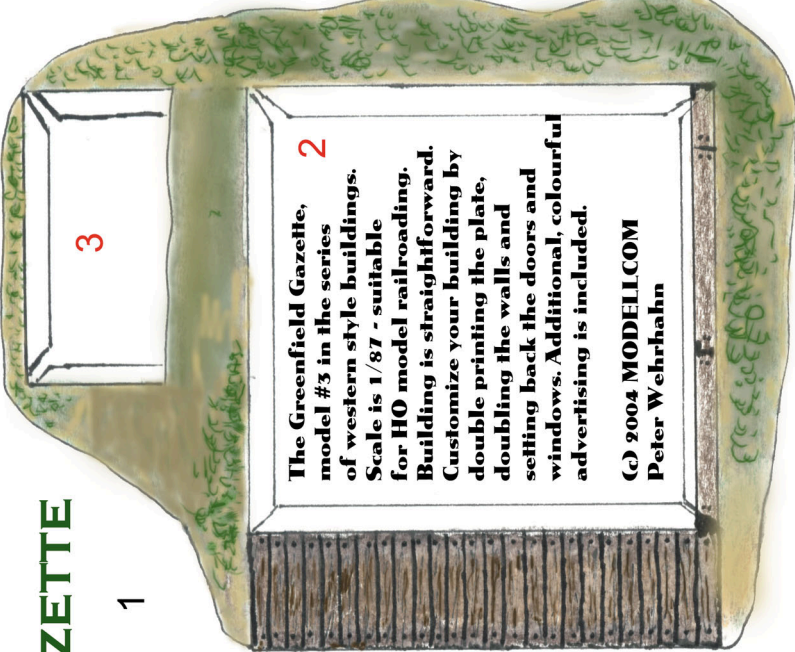 ZETTE
1
3
2
The Greenfield Gazette,
model #3 in the series
of western style buildings.
Scale is 1/87 - suitable
for HO model railroading.
Building is straightforward.
Customize your building by
double printing the plate,
doubling the walls and
setting back the doors and
windows. Additional, colourful
advertising is included.
(c) 2004 MODELLCOM
Peter Wehrhahn